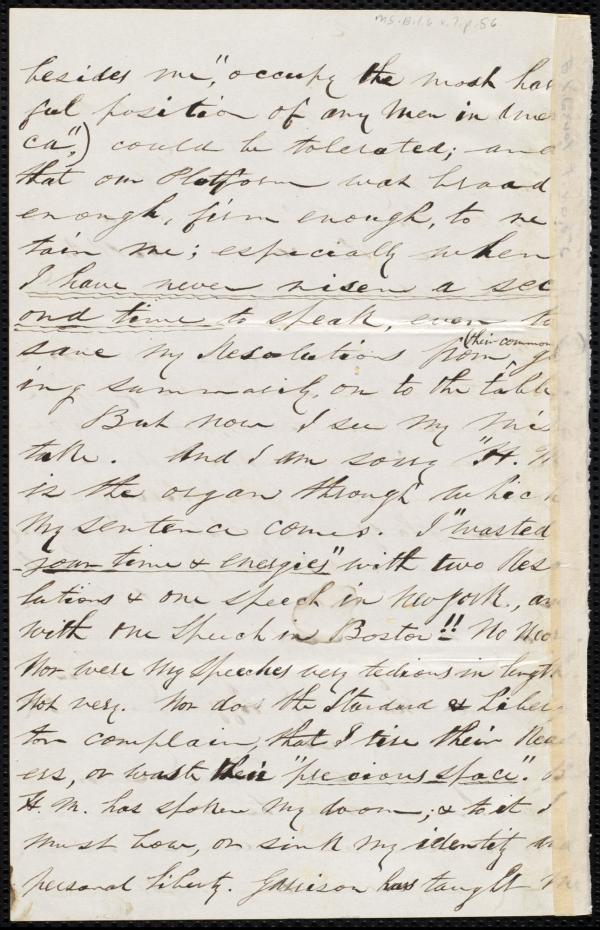 MS. B. 1. 6 v. 7, p. 56
besides me", occupy the most har
ful position of any men in Ame
ca",) could be tolerated; and
that our Platform was broad
enough, firm enough, to re
tain me; especially when
I have never risen a sec
ond time to speak, even to
save my Resolutions from (their common go
ing summarily, on to the table.
But now I see my mis
take. And I am sorry "H. M
is the organ through which
my sentence comes. I "wasted
your time & energies" with two Reso
lutions & one speech in New York, an
with one speech in Boston!! No more
Nor were my speeches very tedious in length
Not very. Nor do the Standard & Libera
tor complain, that I tire their Read
ers, or waste their "precious space".
H. M. has spoken my doom; & to it I
must bow, or sink my identity and
personal liberty. Garrison has taught me